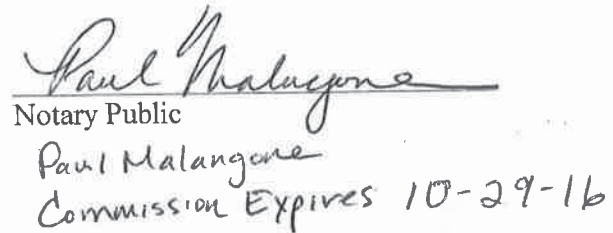 Paul Malangone
Notary Public
Paul Malangone
Commission Expires 10-29-16